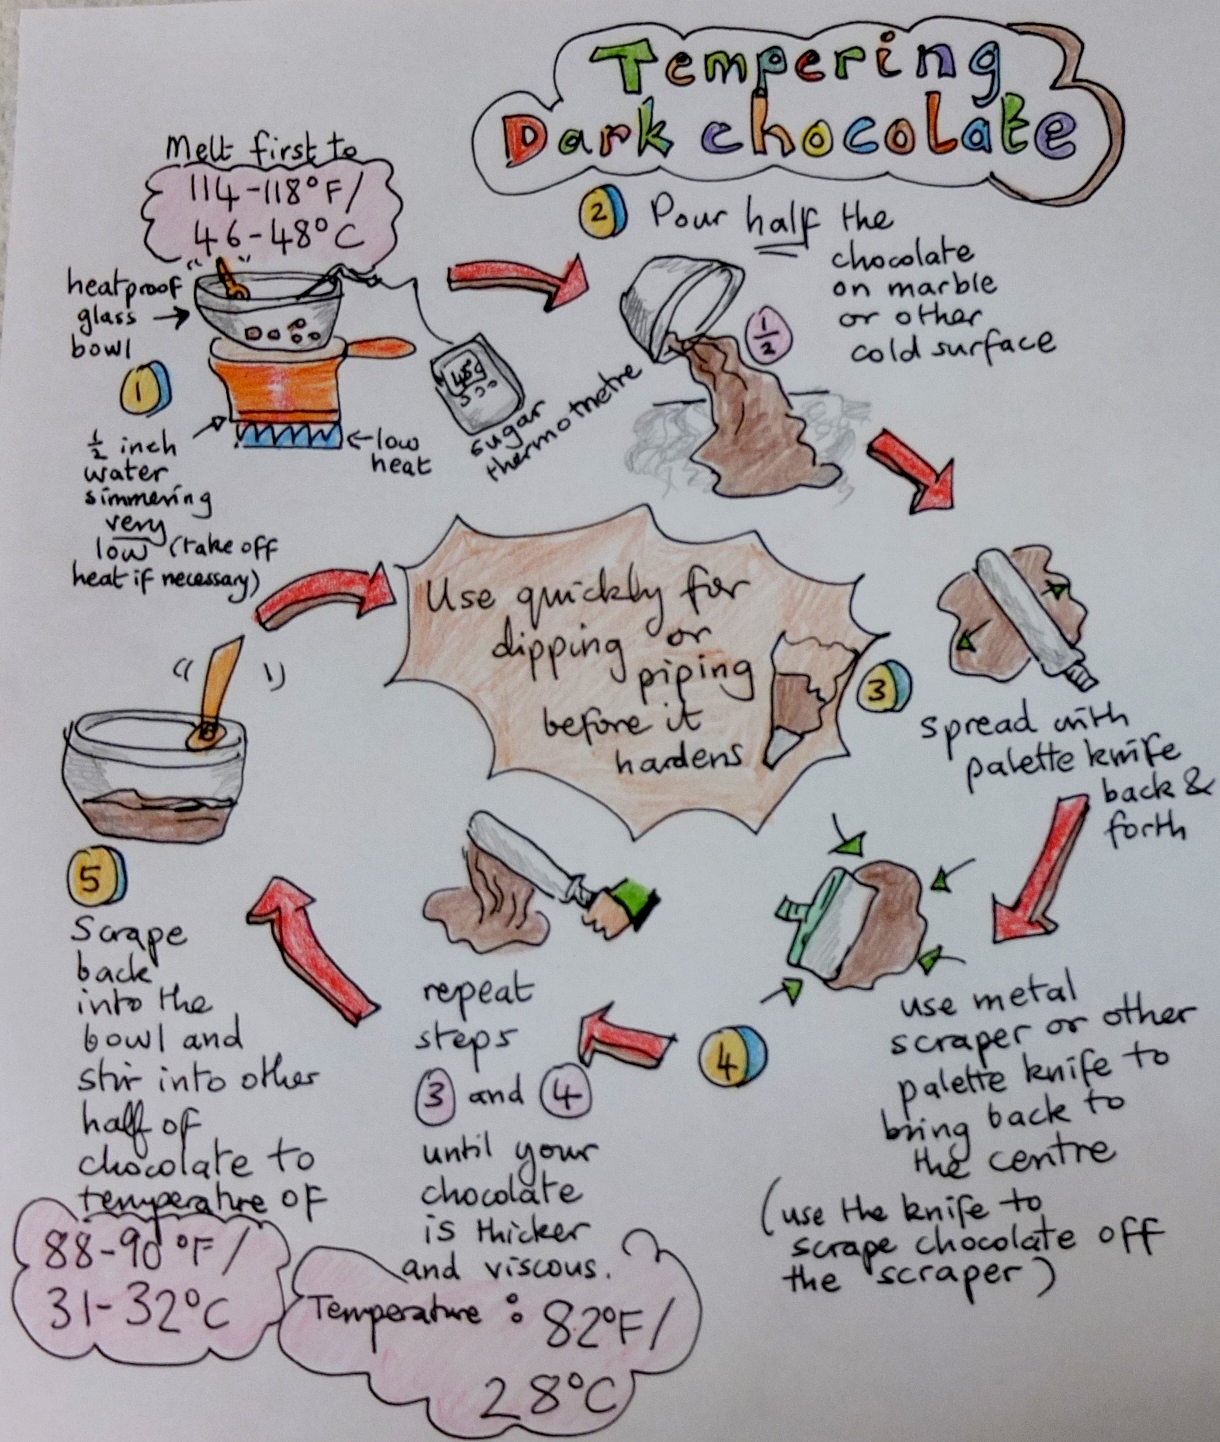 Tempering
Dark chocolate
Melt first to
114-118°F/
46-48°C
heatproof
glass
bowl
1
½ inch
water
simmering
very
low (take off
heat if necessary)
low
heat
sugar
thermometre
2 Pour half the
chocolate
on marble
or other
cold surface
½
3
spread with
palette knife
back &
forth
4
use metal
scraper or other
palette knife to
bring back to
the centre
(use the knife to
scrape chocolate off
the scraper)
repeat
steps
3 and 4
until your
chocolate
is thicker
and viscous.
Temperature: 82°F/
28°C
5
Scrape
back
into the
bowl and
stir into other
half of
chocolate to
temperature of
88-90°F/
31-32°C
Use quickly for
dipping or
piping
before it
hardens